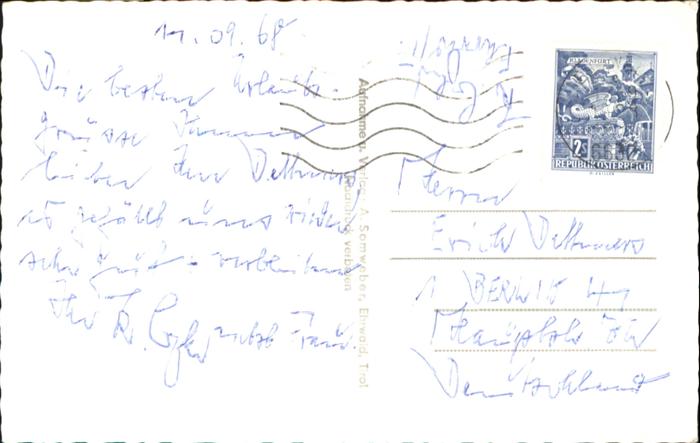 11.09.68
Die besten Urlaubs-
grüsse
lieber Herr Dettmers
es gefällt uns wieder
sehr gut - verbleiben
Ihr K. nebst Frau.
Aufnahme u. Verlag: A. Somweber, Ehrwald, Tirol
Nachdruck verboten
KLAGENFURT
2S
REPUBLIK ÖSTERREICH
Herrn
Erich Dettmers
1 BERLIN 41
Hauptstr
Deutschland